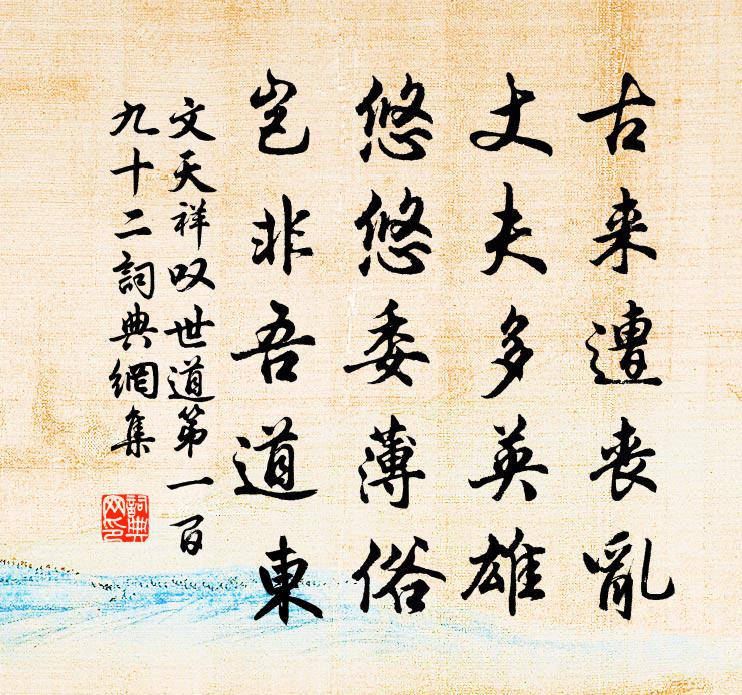 古来遭丧亂
丈夫多英雄
悠悠委薄俗
岂非吾道東
文天祥叹世道第一百
九十二詞典網集
詞典
网印